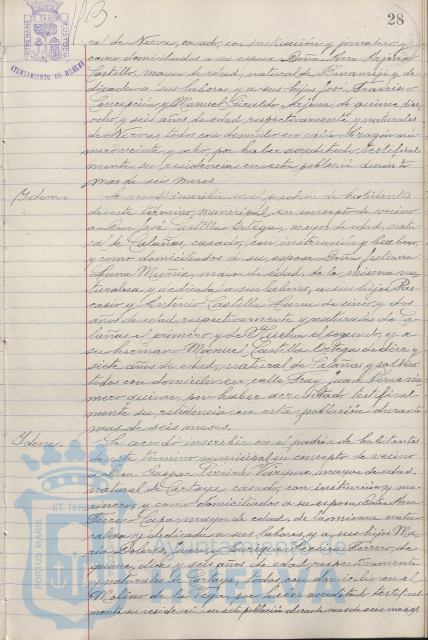 28
ral de Nerva, casado, con instrucción y jornalero y
como domiciliados a su esposa Doña
Castillo, mayor de edad, natural de Benamejí y de
dicada a sus labores y a sus hijos José, Francisco
Concepción y Manuel Giraldo de quince, diez
ocho y seis años de edad respectivamente y naturales
de Nerva, todos con domicilio en calle Aragón nú
mero veinte y ocho, por haber acreditado testifical
mente su residencia en esta población durante
mas de seis meses.
Idem. Se acordó inscribir en el padrón de habitantes
de este término municipal en concepto de vecino
a Don José Castilla Ortega, mayor de edad, natu
ral de Calañas, casado, con instrucción y
y como domiciliados a su esposa Doña Juliana
Luna Muñiz, mayor de edad, de la misma na
turaleza y dedicada a sus labores, a sus hijos
y Antonio Castilla Luna de cinco y dos
años de edad respectivamente y naturales de Ca
lañas el primero y de Huelva el segundo, y a
su hermano Manuel Castilla Ortega de diez y
siete años de edad, natural de Calañas y soltero
todos con domicilio en calle Fray Juan nú
mero quince, por haber acreditado testifical
mente su residencia en esta población durante
mas de seis meses.
Idem. Se acordó inscribir en el padrón de habitantes
de este término municipal en concepto de vecino
a Don Gaspar Pereira Vázquez, mayor de edad,
natural de Cartaya, casado, con instrucción y ma
rinero, y como domiciliados a su esposa Doña Ana
Ferrero mayor de edad, de la misma natu
raleza y dedicada a sus labores, y a sus hijos Ma
ría Dolores, Juan y Enrique Pereira Ferrero, de
quince, diez y seis años de edad respectivamente
y naturales de Cartaya, todos con domicilio en el
Molino de la Vega, por haber acreditado testifical
mente su residencia en esta población durante mas de seis meses
AYUNTAMIENTO DE HUELVA
PORTUS MARIS ET TERRAE
Ayuntamiento de